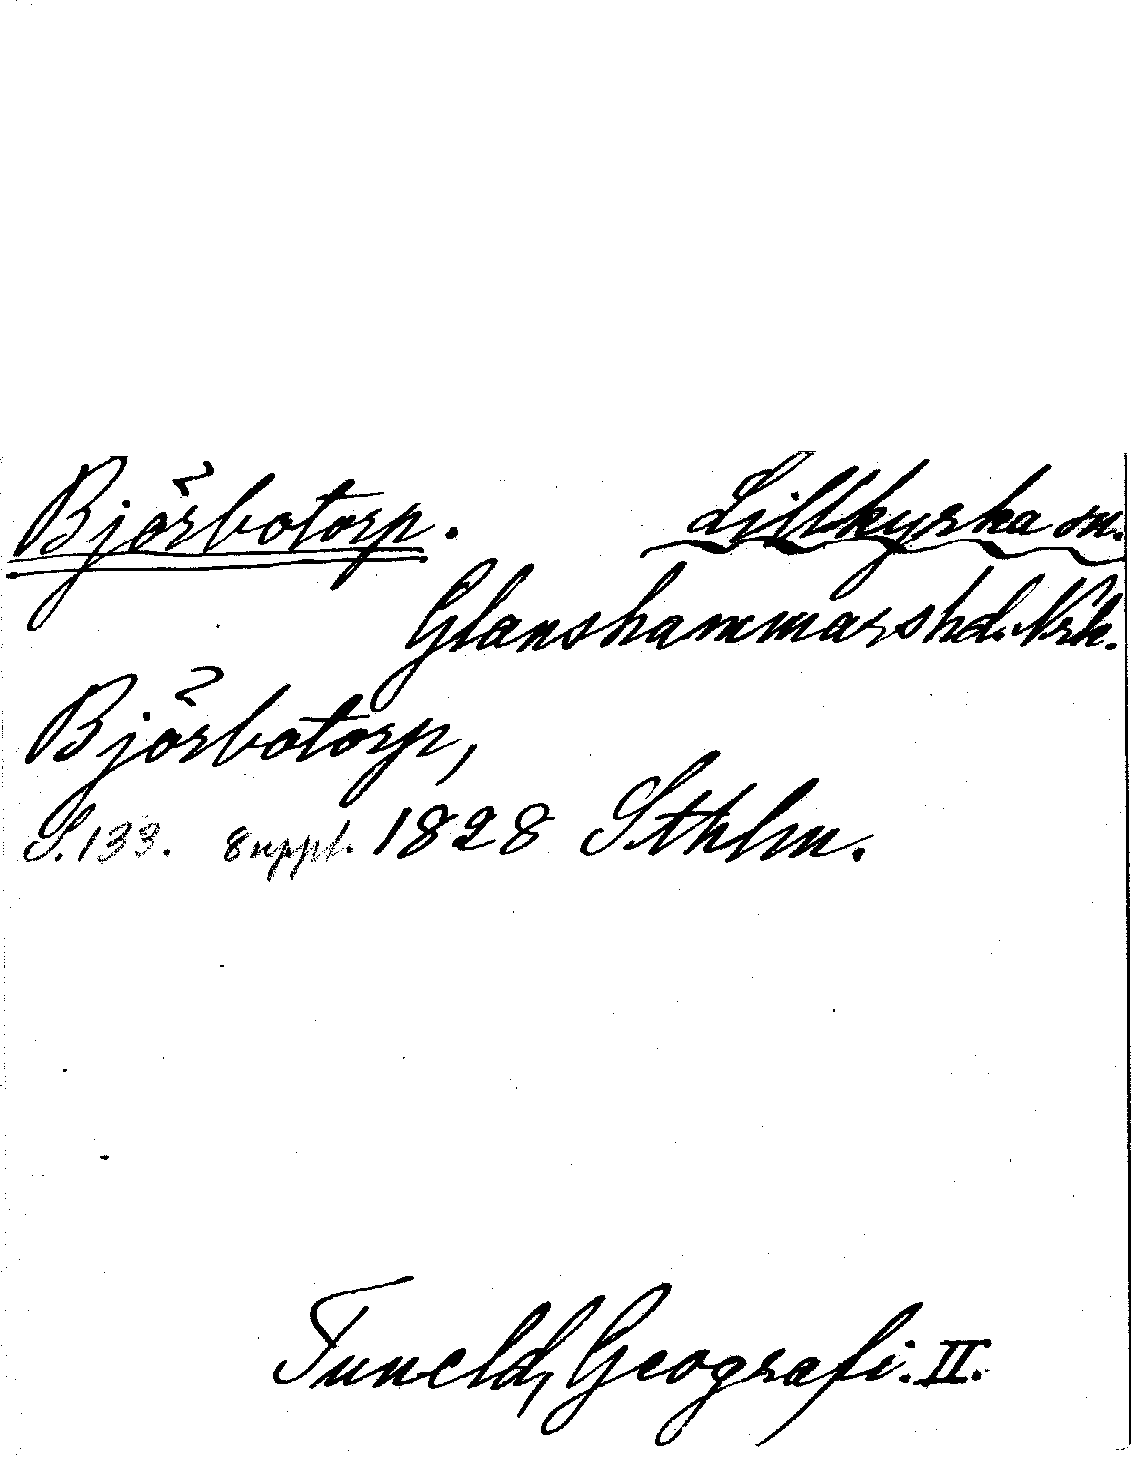 Björbotorp. Lillkyrka sn.
Glanshammarshd. Nrk.
Björbotorp,
S. 133. 8 uppl. 1828 Sthlm.
Tuneld, Geografi. II.